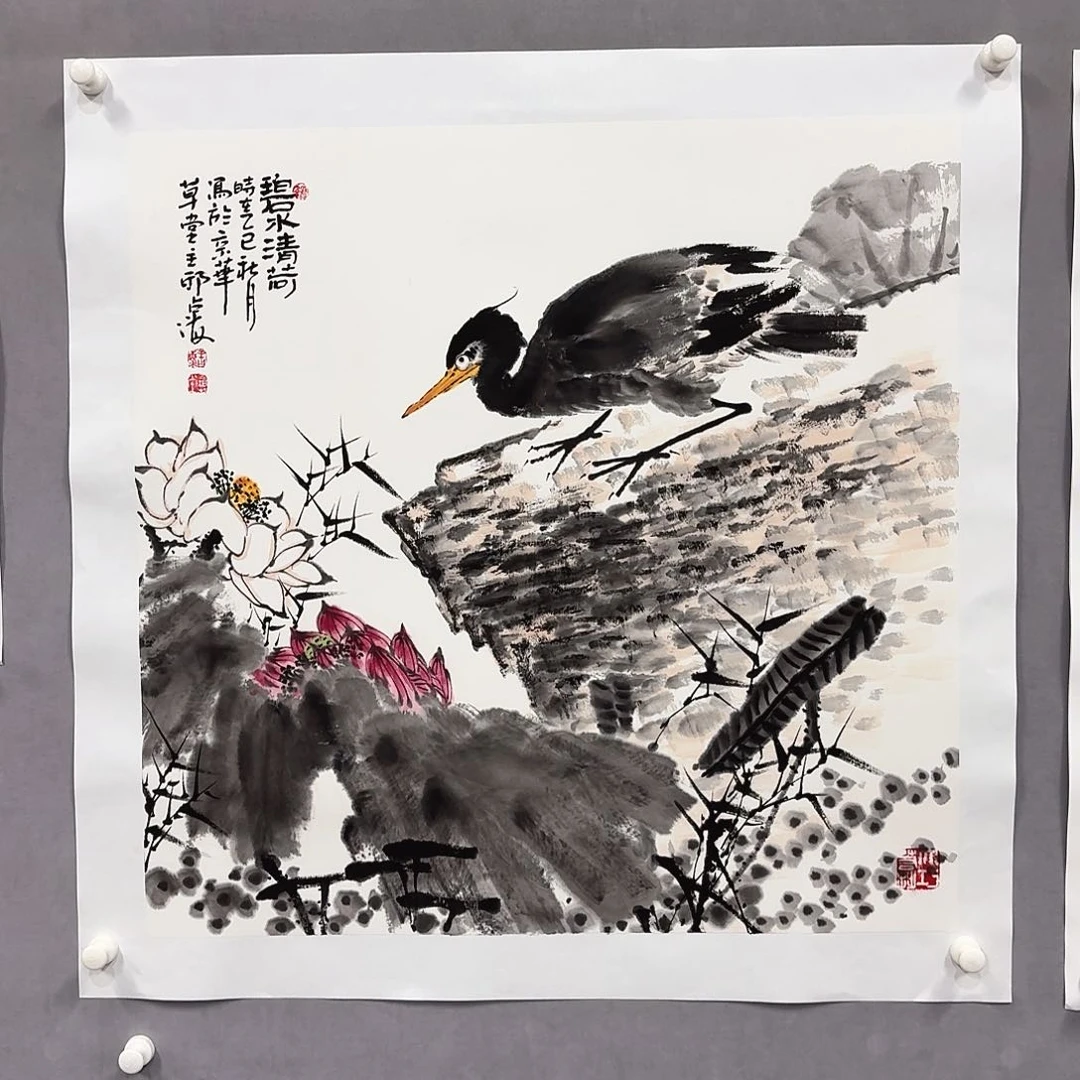 碧水清荷
時在乙巳秋月
寫於京華
草堂主邢